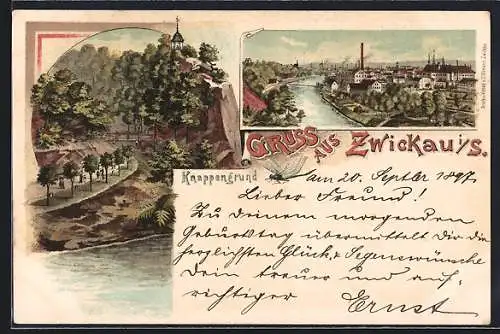 GRUSS AUS ZWICKAU i/S.
Knappengrund
am 20. Septbr 1897.
Lieber Freund!
Zu Deinem morgenden
Geburtstag übermittelt Dir die
herzlichsten Glück- & Segenswünsche
Dein treuer und auf-
richtiger Ernst